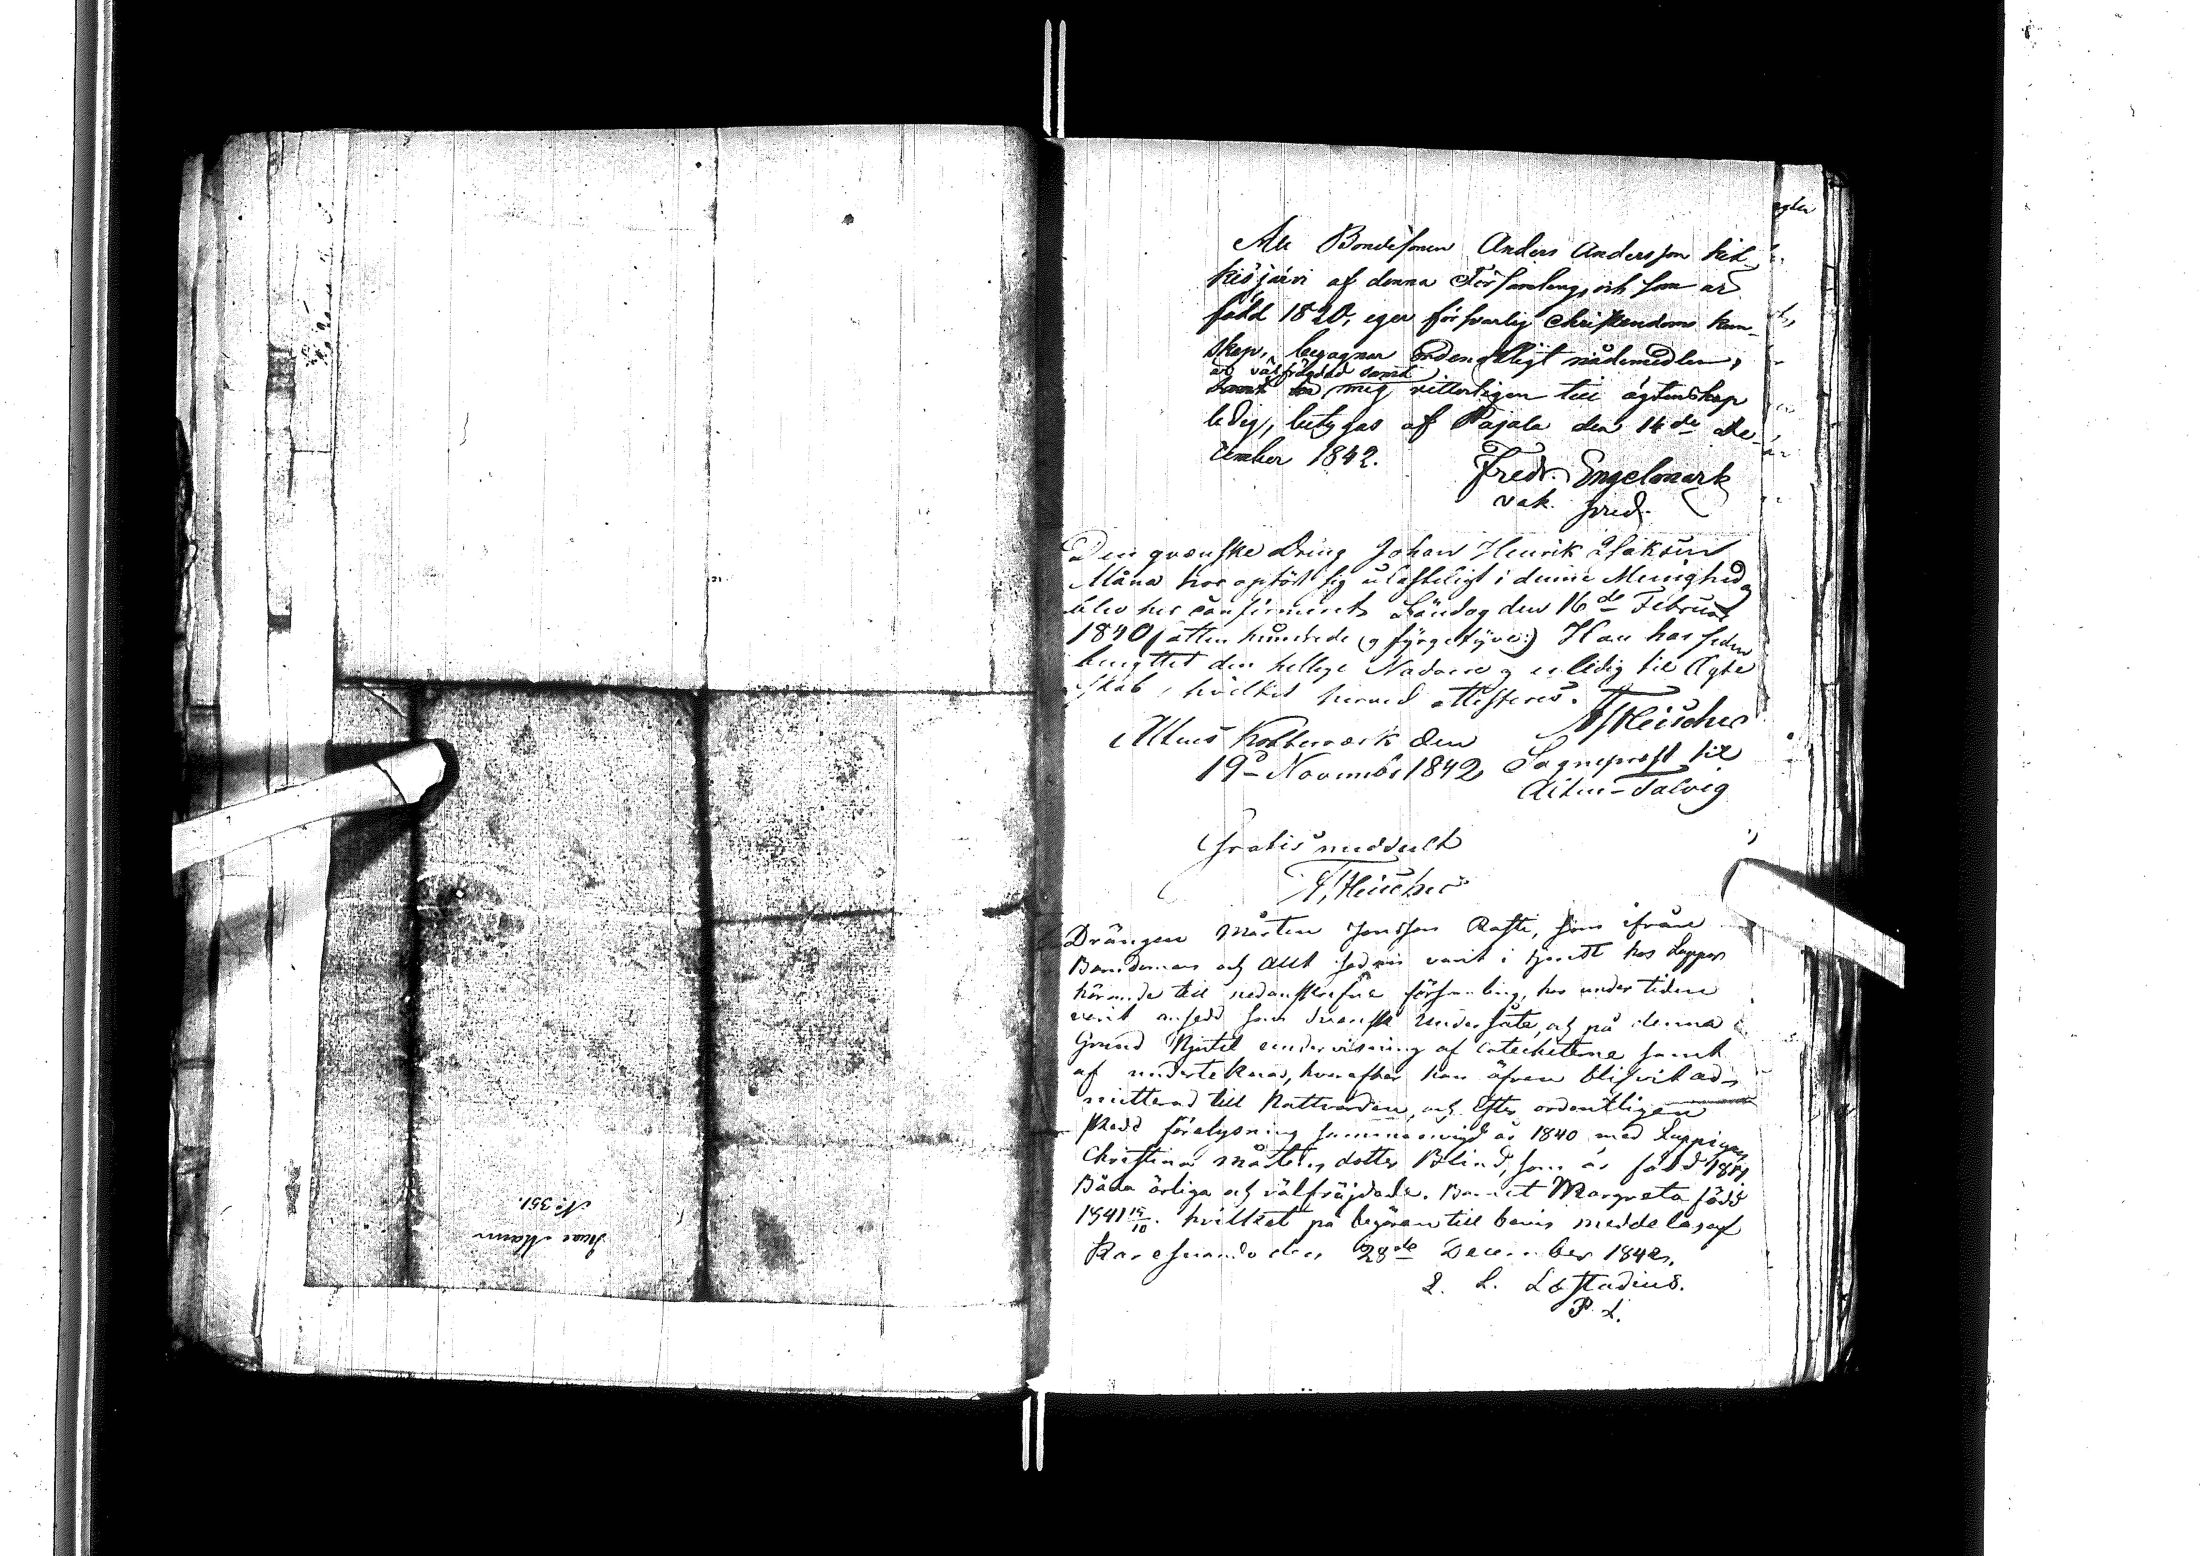 Att Bondesonen Anders Andersson Kit-
kisjärvi af denna Församling, och som är
född 1820, eger försvarlig Christendoms kun-
skap, begagnar ordentligt nådemedlen,
är välfrägdad samt
mig vitterligen till ägtenskap
ledig, betygas af Pajala den 14de De-
cember 1842.
Fredr. Engelmark
vak. pred.
Den qvenske Dreng Johan Henrik Isaksen
Måna har opfört sig ulasteligt i denne Menighed
blev her confirmeret Søndag den 16de Februar
1840 (: atten hundrede og fyrgetyve :) Han har siden
benyttet den hellige Nadvere og er ledig til Ægte
skab, hvilket herved attesteres.
Altens Kobberverk den
19de November 1842
Sognepræst til
Alten-Talvig
Gratis meddeelt
Drängen Mårten Jonsson Rasti, som ifrån
Barndomen och allt sedan varit i tjenst hos Lappar
hörande till nedanskrefne församling, har under tiden
varit ansedd som Svensk Undersåte, och på denna
Grund njutit undervisning af Catecheterne samt
af undertecknad, hvarefter han äfven blifvit ad-
mitterad till Nattvarden, och efter ordentligen
skedd förelysning sammanvigd år 1840 med Lappigan
Christina Mårtens dotter Blind, som är född
Båda ärliga och välfräjdade. Barnet Margreta född
1841 19/10. hvilket på begäran till bevis meddelas af
Karesuando den 28de December 1842.
L. L. Læstadius.
P. L.
No 351.